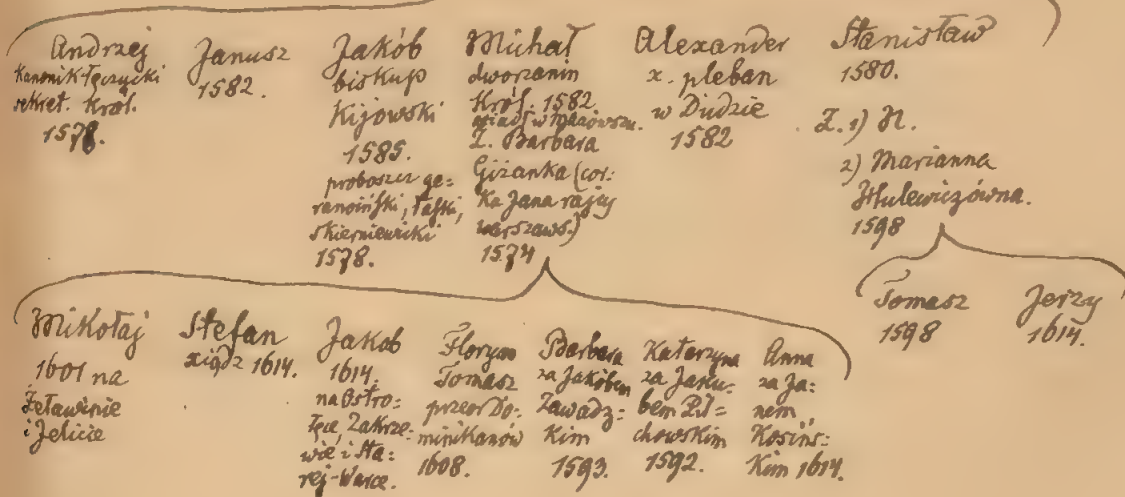 Andrzej
Kanonik łęczycki
sekret. Król.
1578.
Janusz
1582.
Jakób
biskup
Kijowski
1585.
proboszcz ge=
ranoiński, łaski,
skierniewicki
1578.
Michał
dworzanin
Król. 1582
osiadł w Mazowszu.
Ż. Barbara
Giżanka (cór=
ka Jana rajcy
warszaws.)
1574
Alexander
x. pleban
w Dudzie
1582
Stanisław
1580.
Ż. 1) N.
2) Marianna
Hulewiczówna.
1598
Mikołaj
1601 na
Żeławinie
i Jelicie
Stefan
xiądz 1614.
Jakób
1614.
na Ostro=
łęce, Zakrze=
wie i Sta=
rej-Warce.
Floryan
Tomasz
przeor Do=
minikanów
1608.
Barbara
za Jakóbem
Zawadz=
kim
1593.
Katarzyna
za Jaku=
bem Pił=
chowskim
1592.
Anna
za Ja=
nem
Kosińs=
kim 1614.
Tomasz
1598
Jerzy
1614.